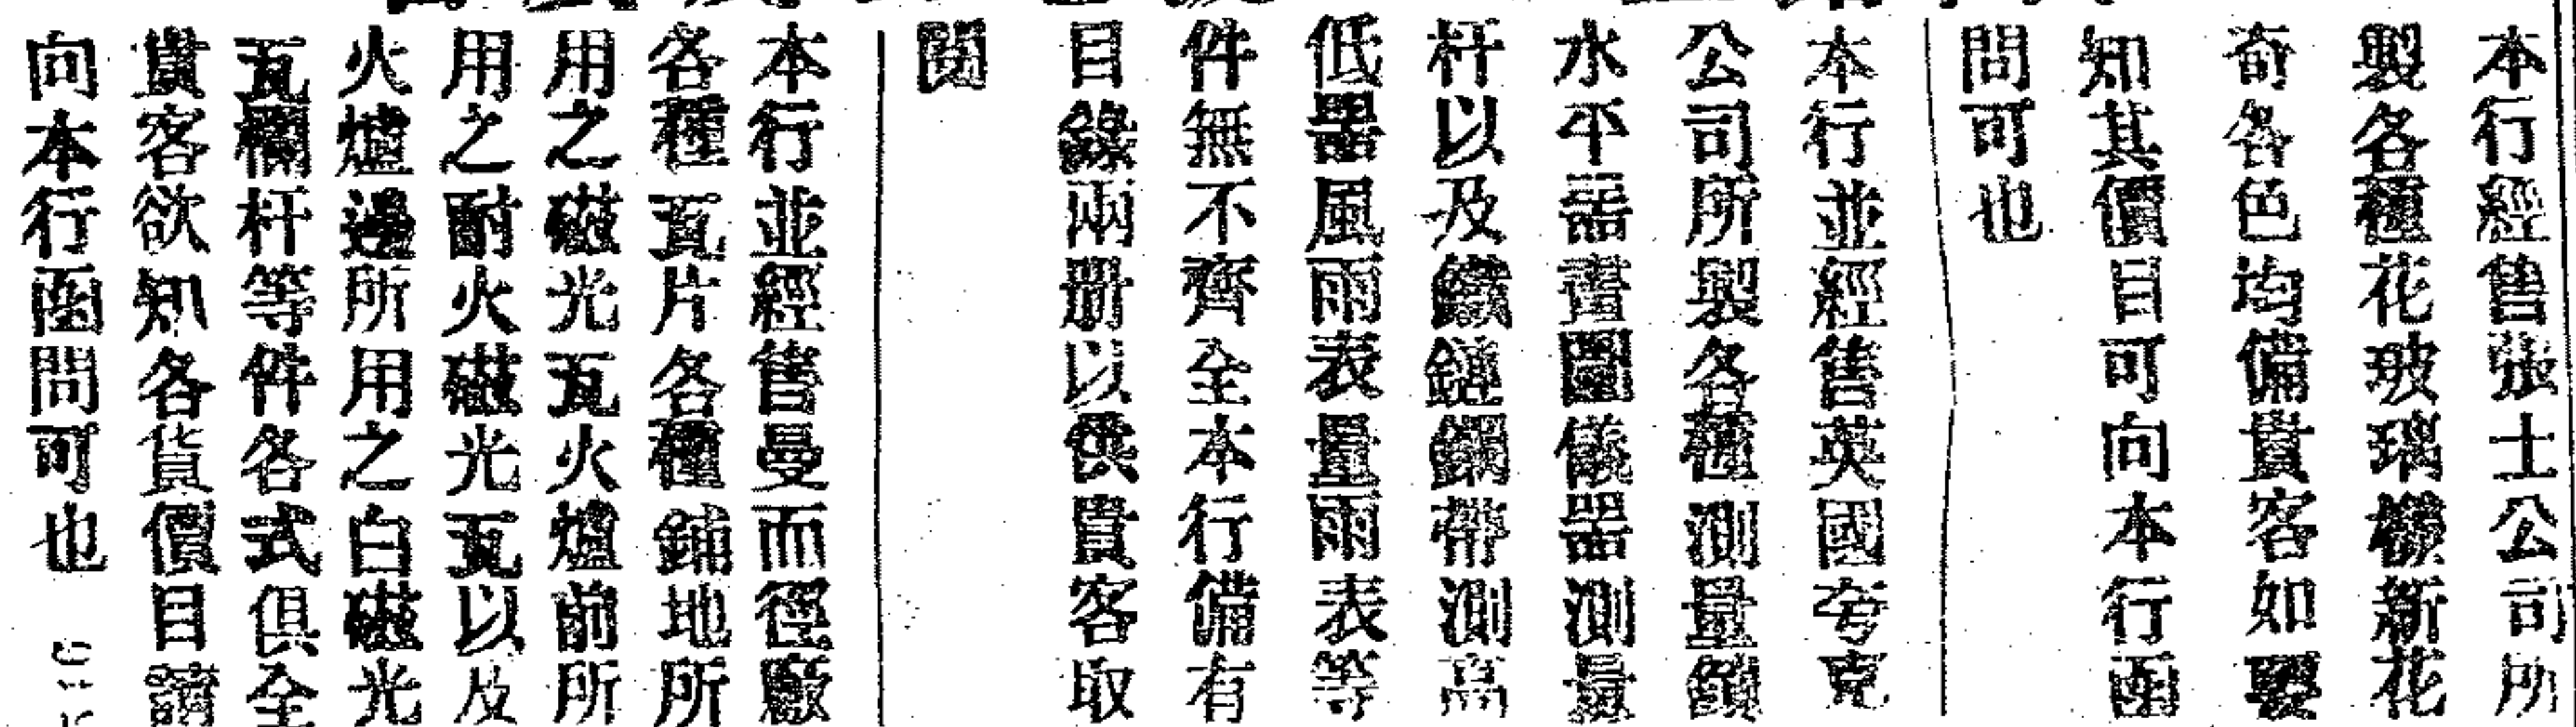 本行經售張士公司所
製各種花玻璃樣新花
奇各色均備貴客如要
知其價目可向本行函
問可也
本行並經售英國夸克
公司所製各種測量鏡
水平畫圖儀器測量
杆以及鐵鏈鋼帶測高
低器風雨表量雨表等
件無不齊全本行備有
目錄兩册以供貴客取
閱
本行並經售曼而徑廠
各種瓦片各種鋪地所
用之磁光瓦火爐前所
用之耐火磁光瓦以及
火爐邊所用之白磁光
瓦欄杆等件各式俱全
貴客欲知各貨價目請
向本行函問可也